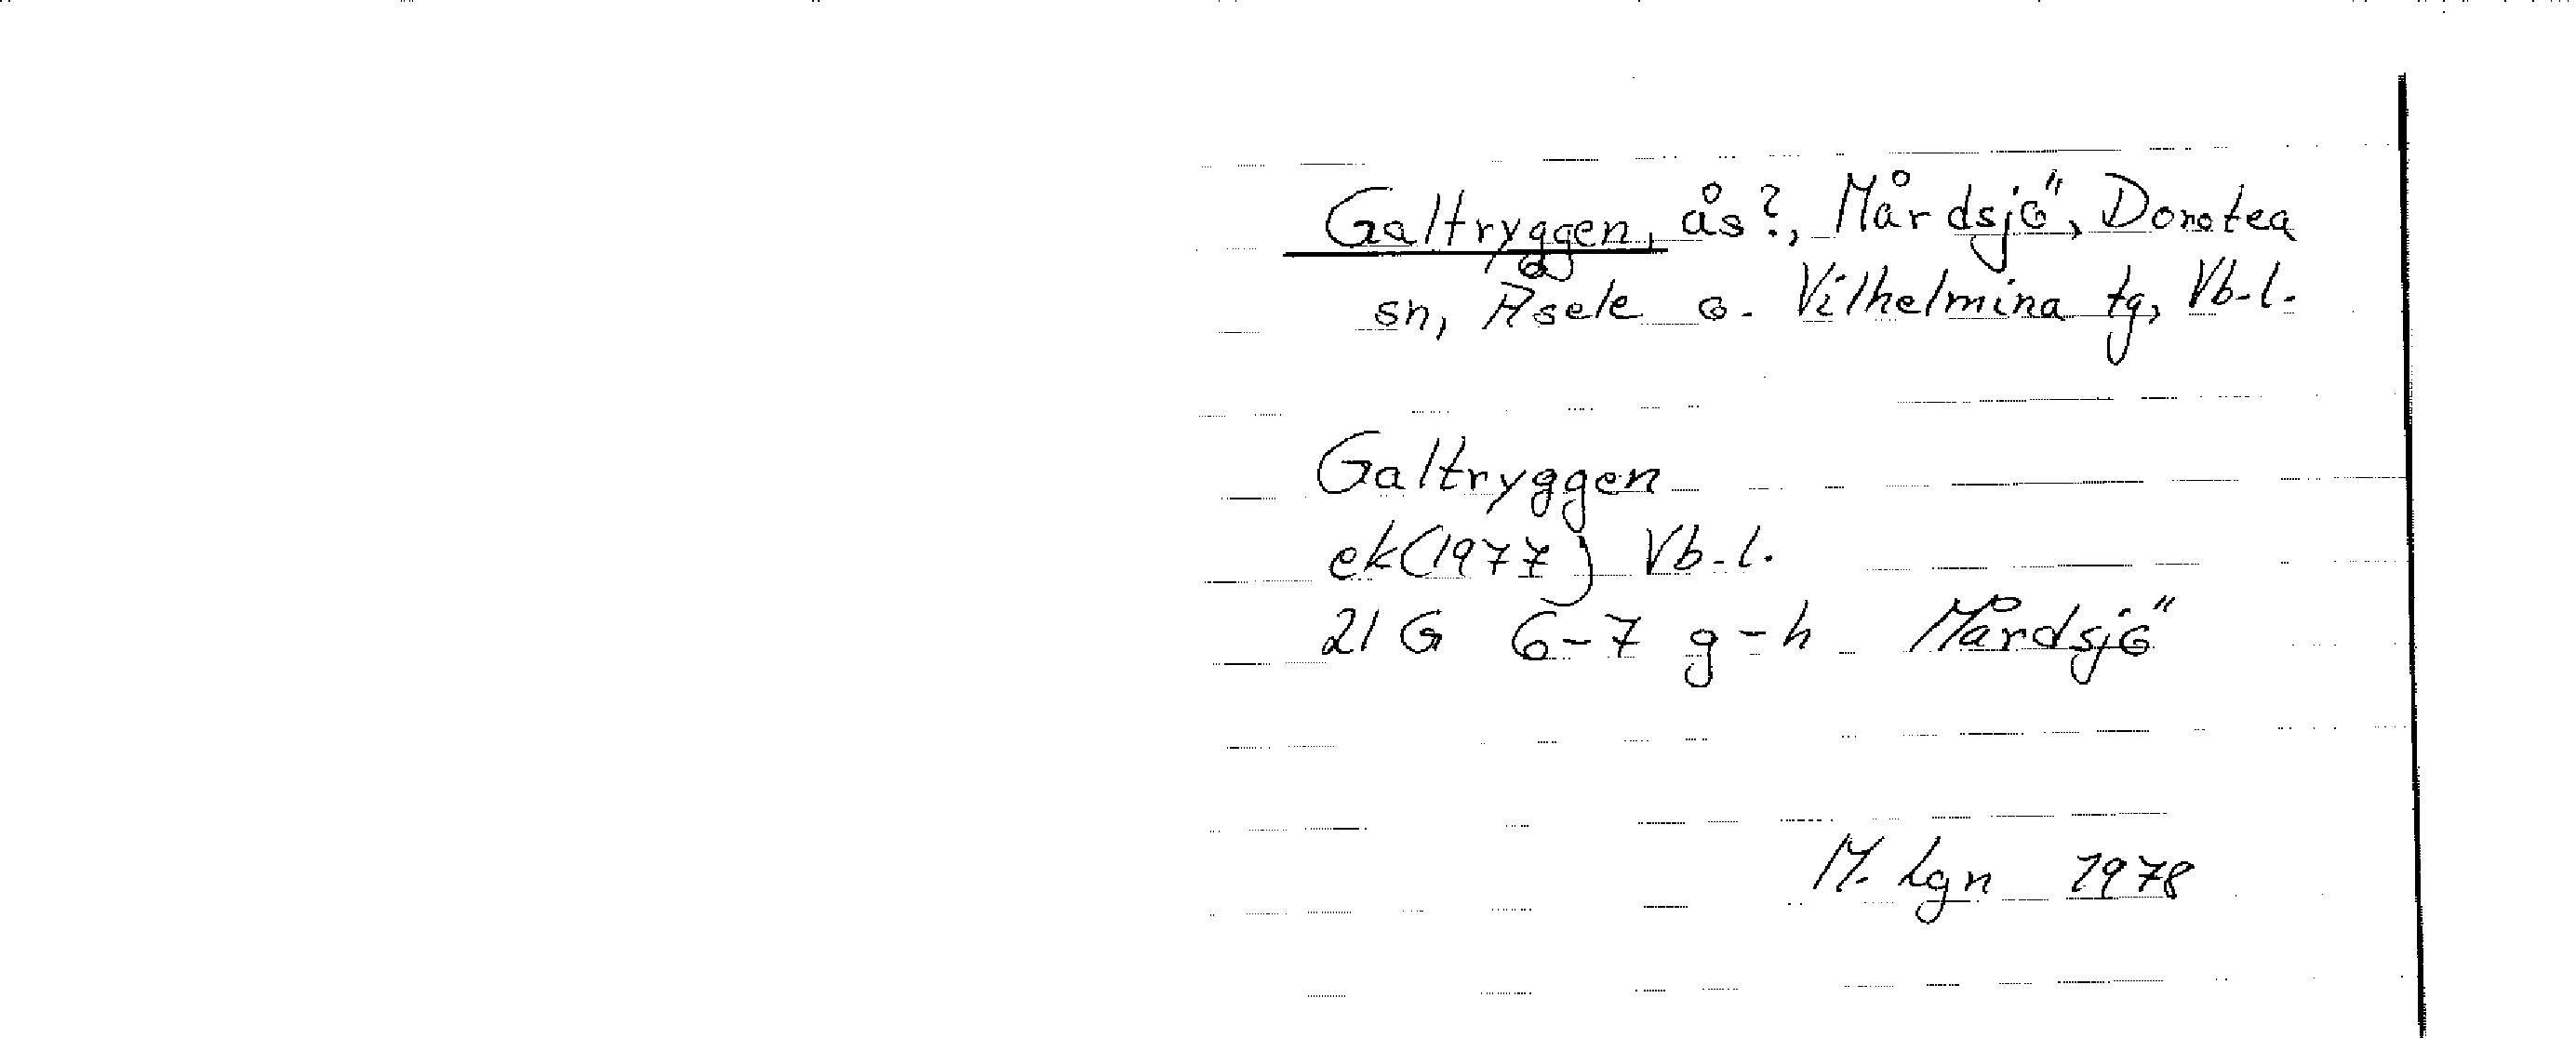 Galtryggen, ås?, Mårdsjö, Dorotea
sn, Åsele o. Vilhelmina tg, Vb-l.
Galtryggen
ek(1977) Vb-l.
21 G 6-7 g-h Mårdsjö
M. Lgn 1978